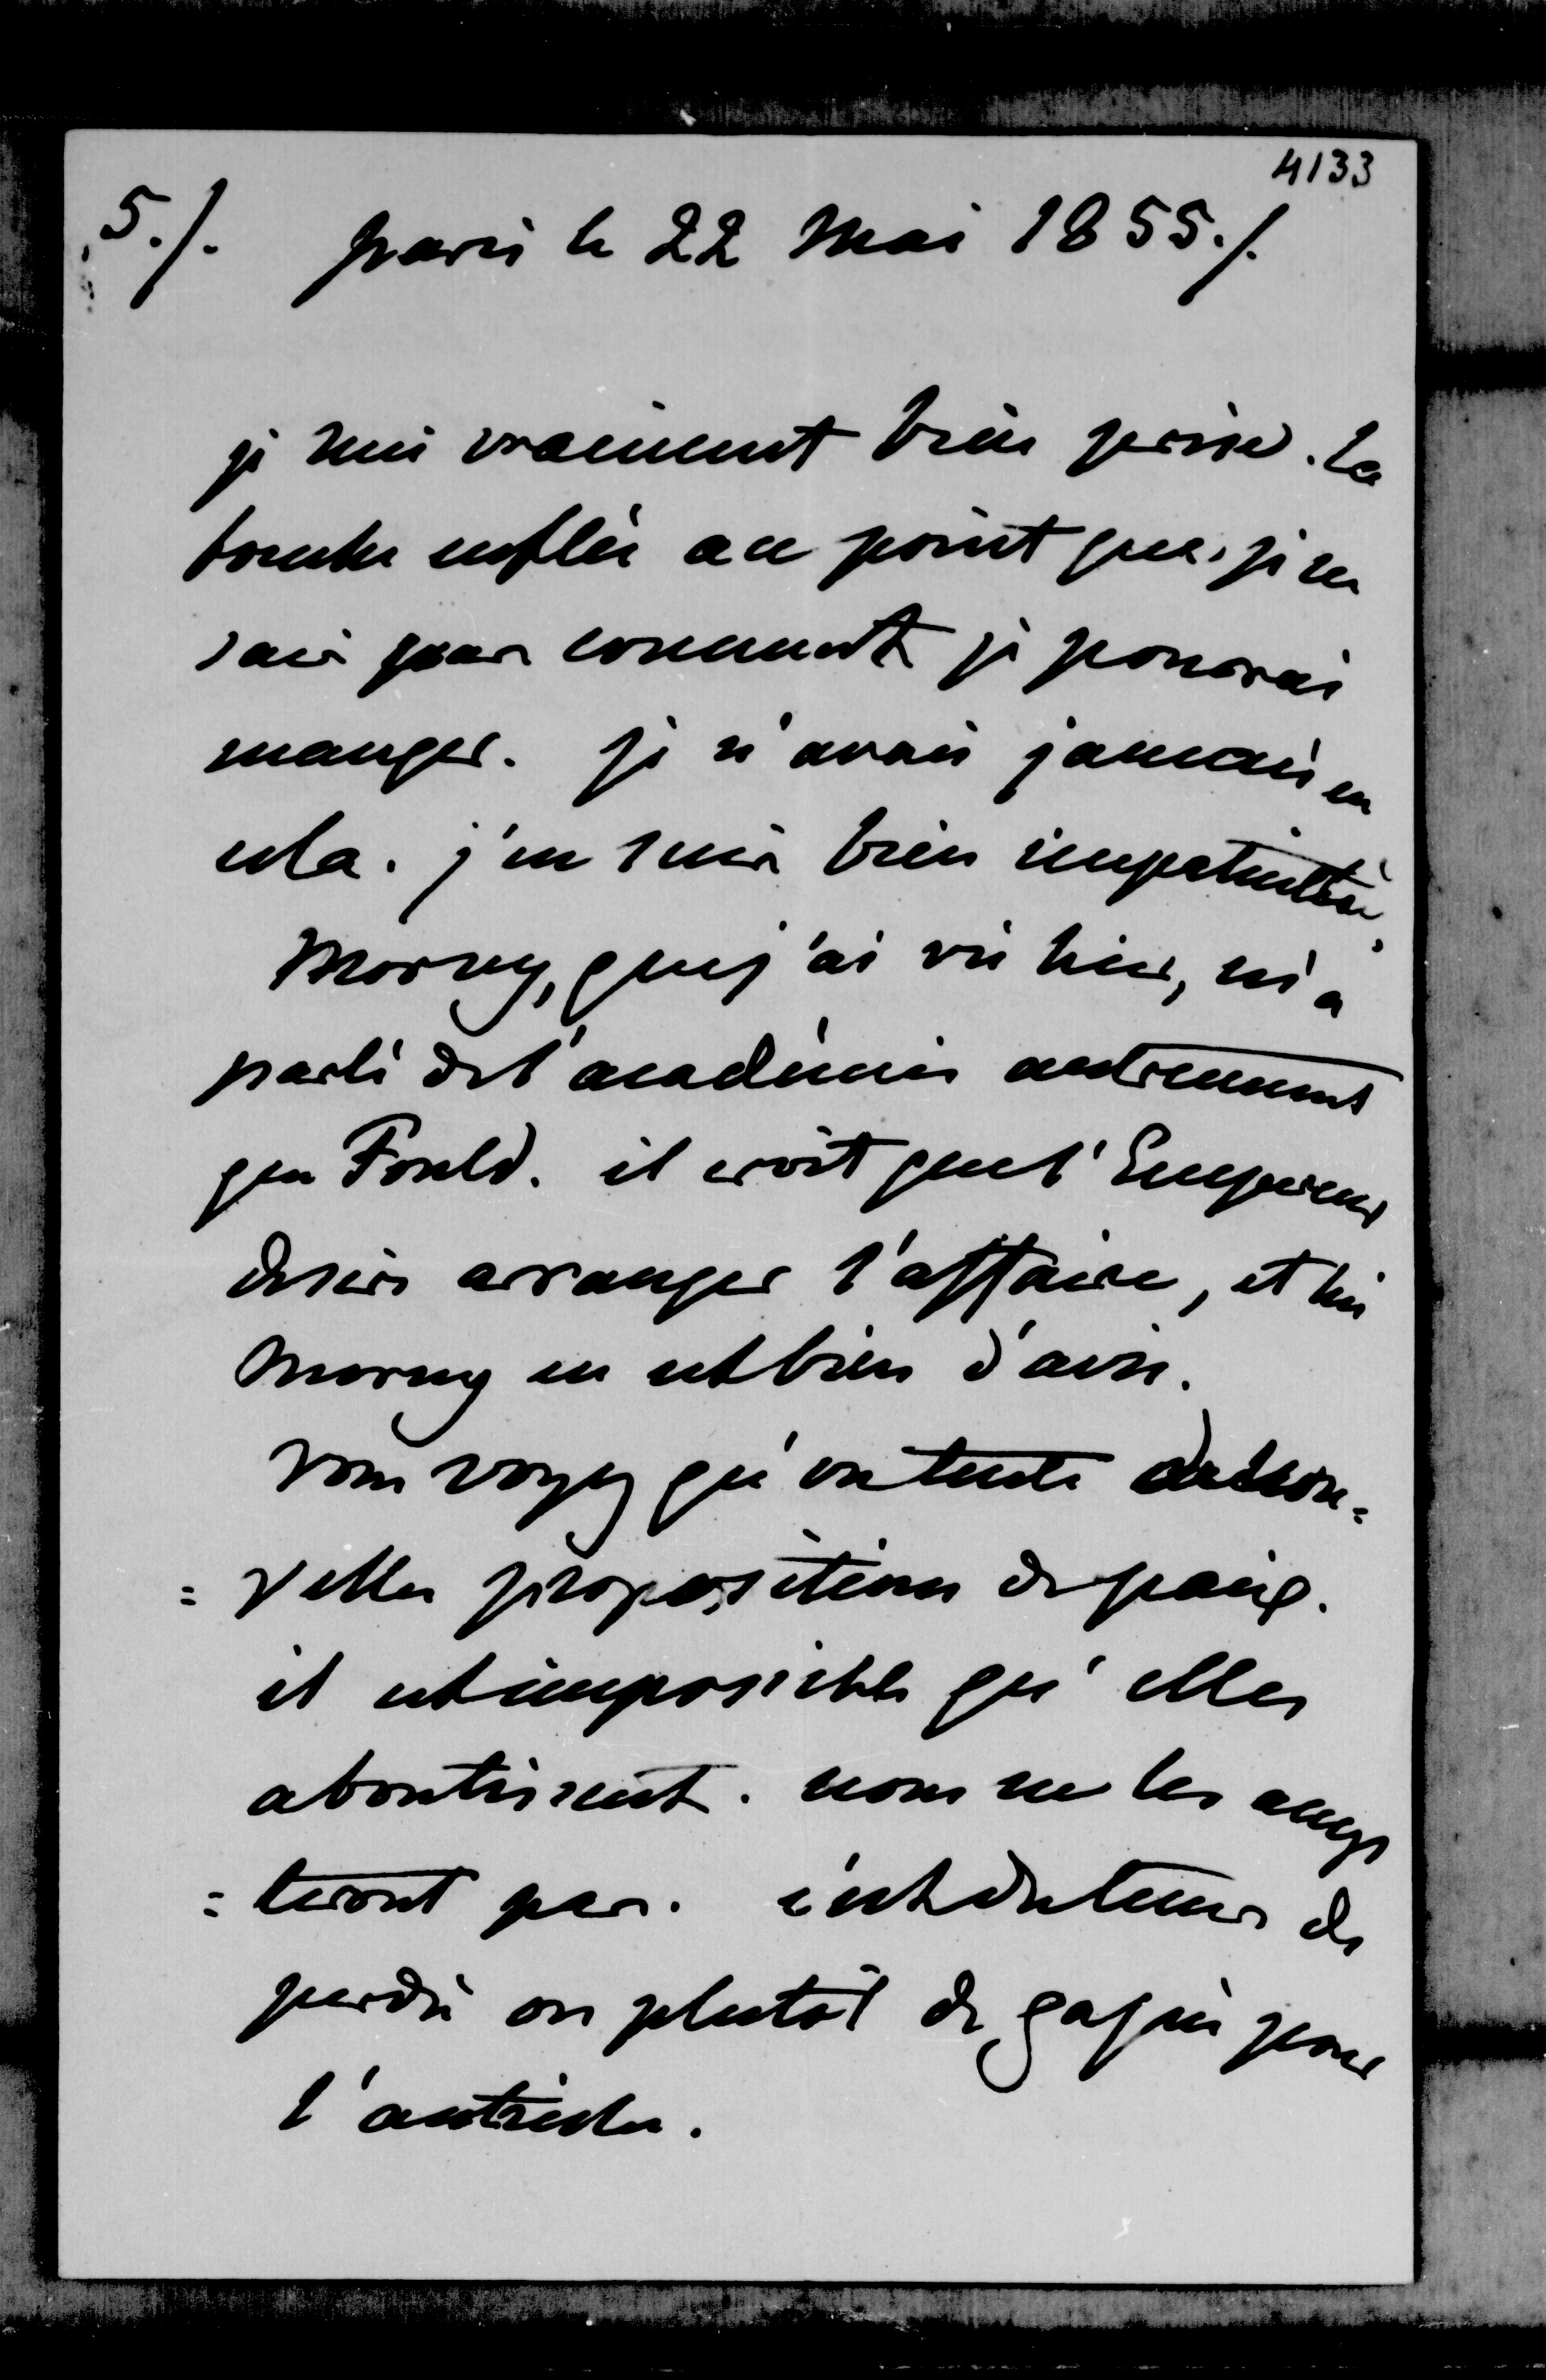 4133
5./. paris le 22 Mai 1855./.
je suis vraiment bien prise. la
bouche enflée au point que je ne
sais pas comment je pourrai
manger. je n'avais jamais eu
cela. j'en suis bien impatientée.
Morny, que j'ai vu hier, m'a
parlé de l'académie autrement
que Fould. il croit que l'Empereur
désire arranger l'affaire, et lui
Morny en est bien d'avis.
Vous voyez qu'on tente de nou=
=velles propositions de paix.
il est impossible qu'elles
aboutissent. nous ne les accep
=teront pas. c'est du tems de
perdu ou plutôt de gagné pour
l'autriche.